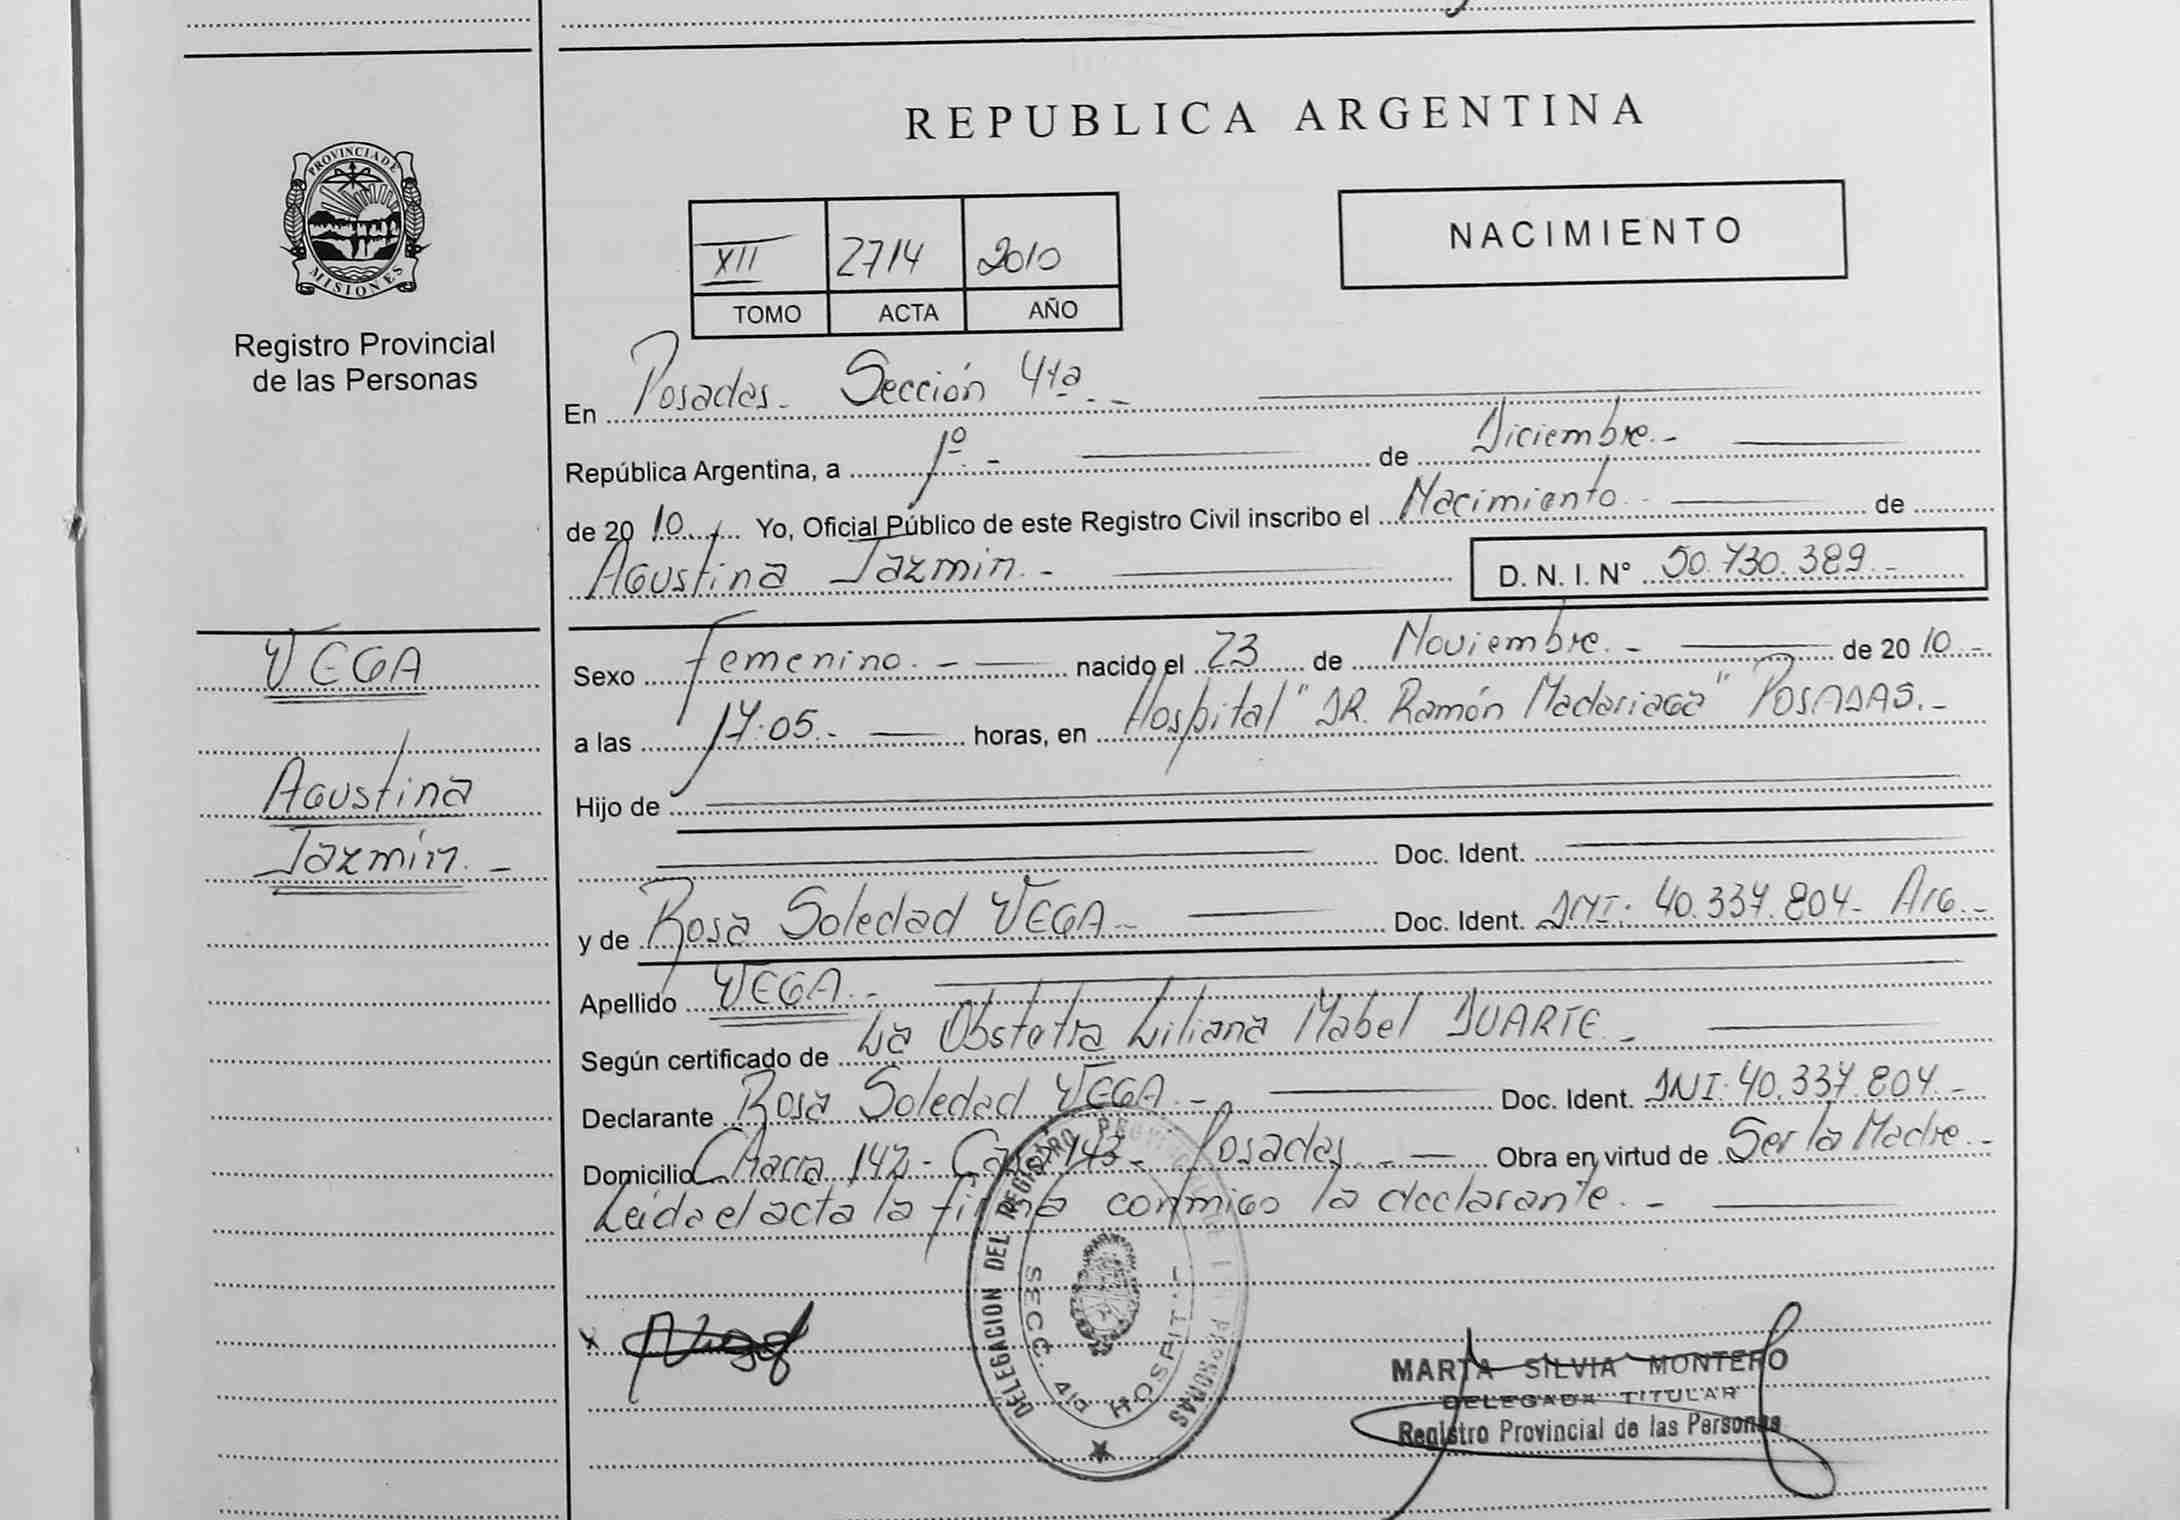 REPUBLICA ARGENTINA
PROVINCIA DE MISIONES
Registro Provincial
de las Personas
NACIMIENTO
XII 2714 2010
TOMO ACTA AÑO
En Posadas - Sección 4ta. -
República Argentina, a 1º. - de Diciembre. -
de 2010 Yo, Oficial Público de este Registro Civil inscribo el Nacimiento. - de
Agustina Jazmin. - D. N. I. Nº 50.730.389. -
VEGA
Agustina
Jazmín. -
Sexo Femenino. - nacido el 23 de Noviembre. - de 2010. -
a las 17:05. - horas, en Hospital "DR. Ramón Madariaga" POSADAS. -
Hijo de
Doc. Ident.
y de Rosa Soledad VEGA - Doc. Ident. DNI: 40.337.804 - Arg. -
Apellido VEGA. -
Según certificado de La Obstetra Liliana Mabel DUARTE. -
Declarante Rosa Soledad VEGA. - Doc. Ident. DNI: 40.337.804. -
Domicilio Chacra 142 - Casa 143 - Posadas. - Obra en virtud de Ser la Madre. -
Leida el acta la firma conmigo la declarante. -
DELEGACION DEL REGISTRO PROVINCIAL DE LAS PERSONAS
SECC. 4ta HOSPITAL
MARTA SILVIA MONTERO
DELEGADA TITULAR
Registro Provincial de las Personas